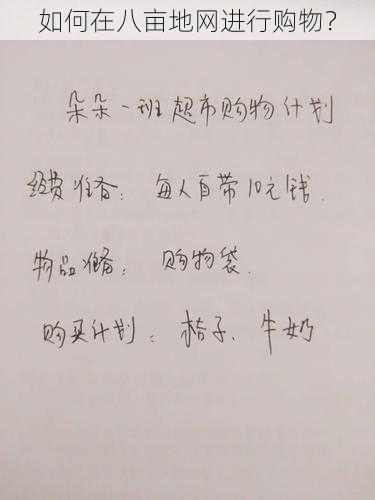 如何在八亩地网进行购物？
朵朵一班超市购物计划
经费准备：每人自带10元钱.
物品准备：购物袋.
购买计划：桔子、牛奶